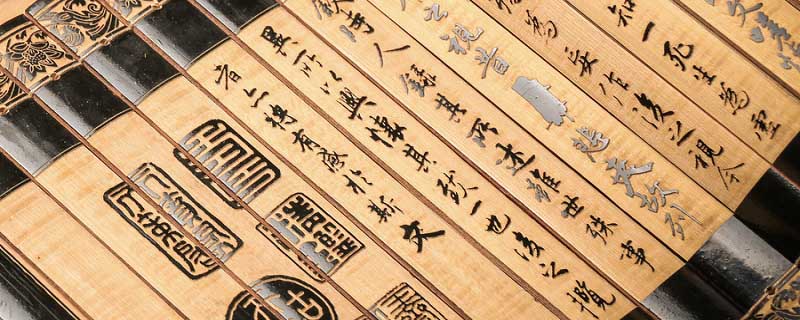 文嗟悼
知一死生為虛
為妄作後之視今
之視昔悲夫故列
敘時人錄其所述雖世殊事
異所以興懷其致一也後之攬
者亦將有感於斯文